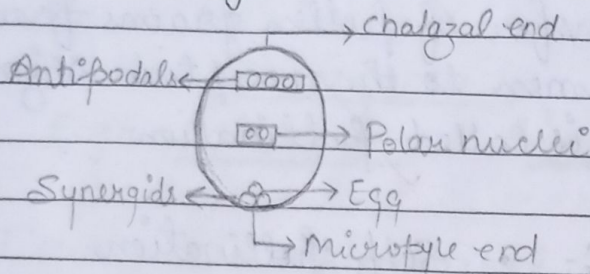 Chalazal end
Antipodals
Polar nuclei
Synergids
Egg
Micropyle end